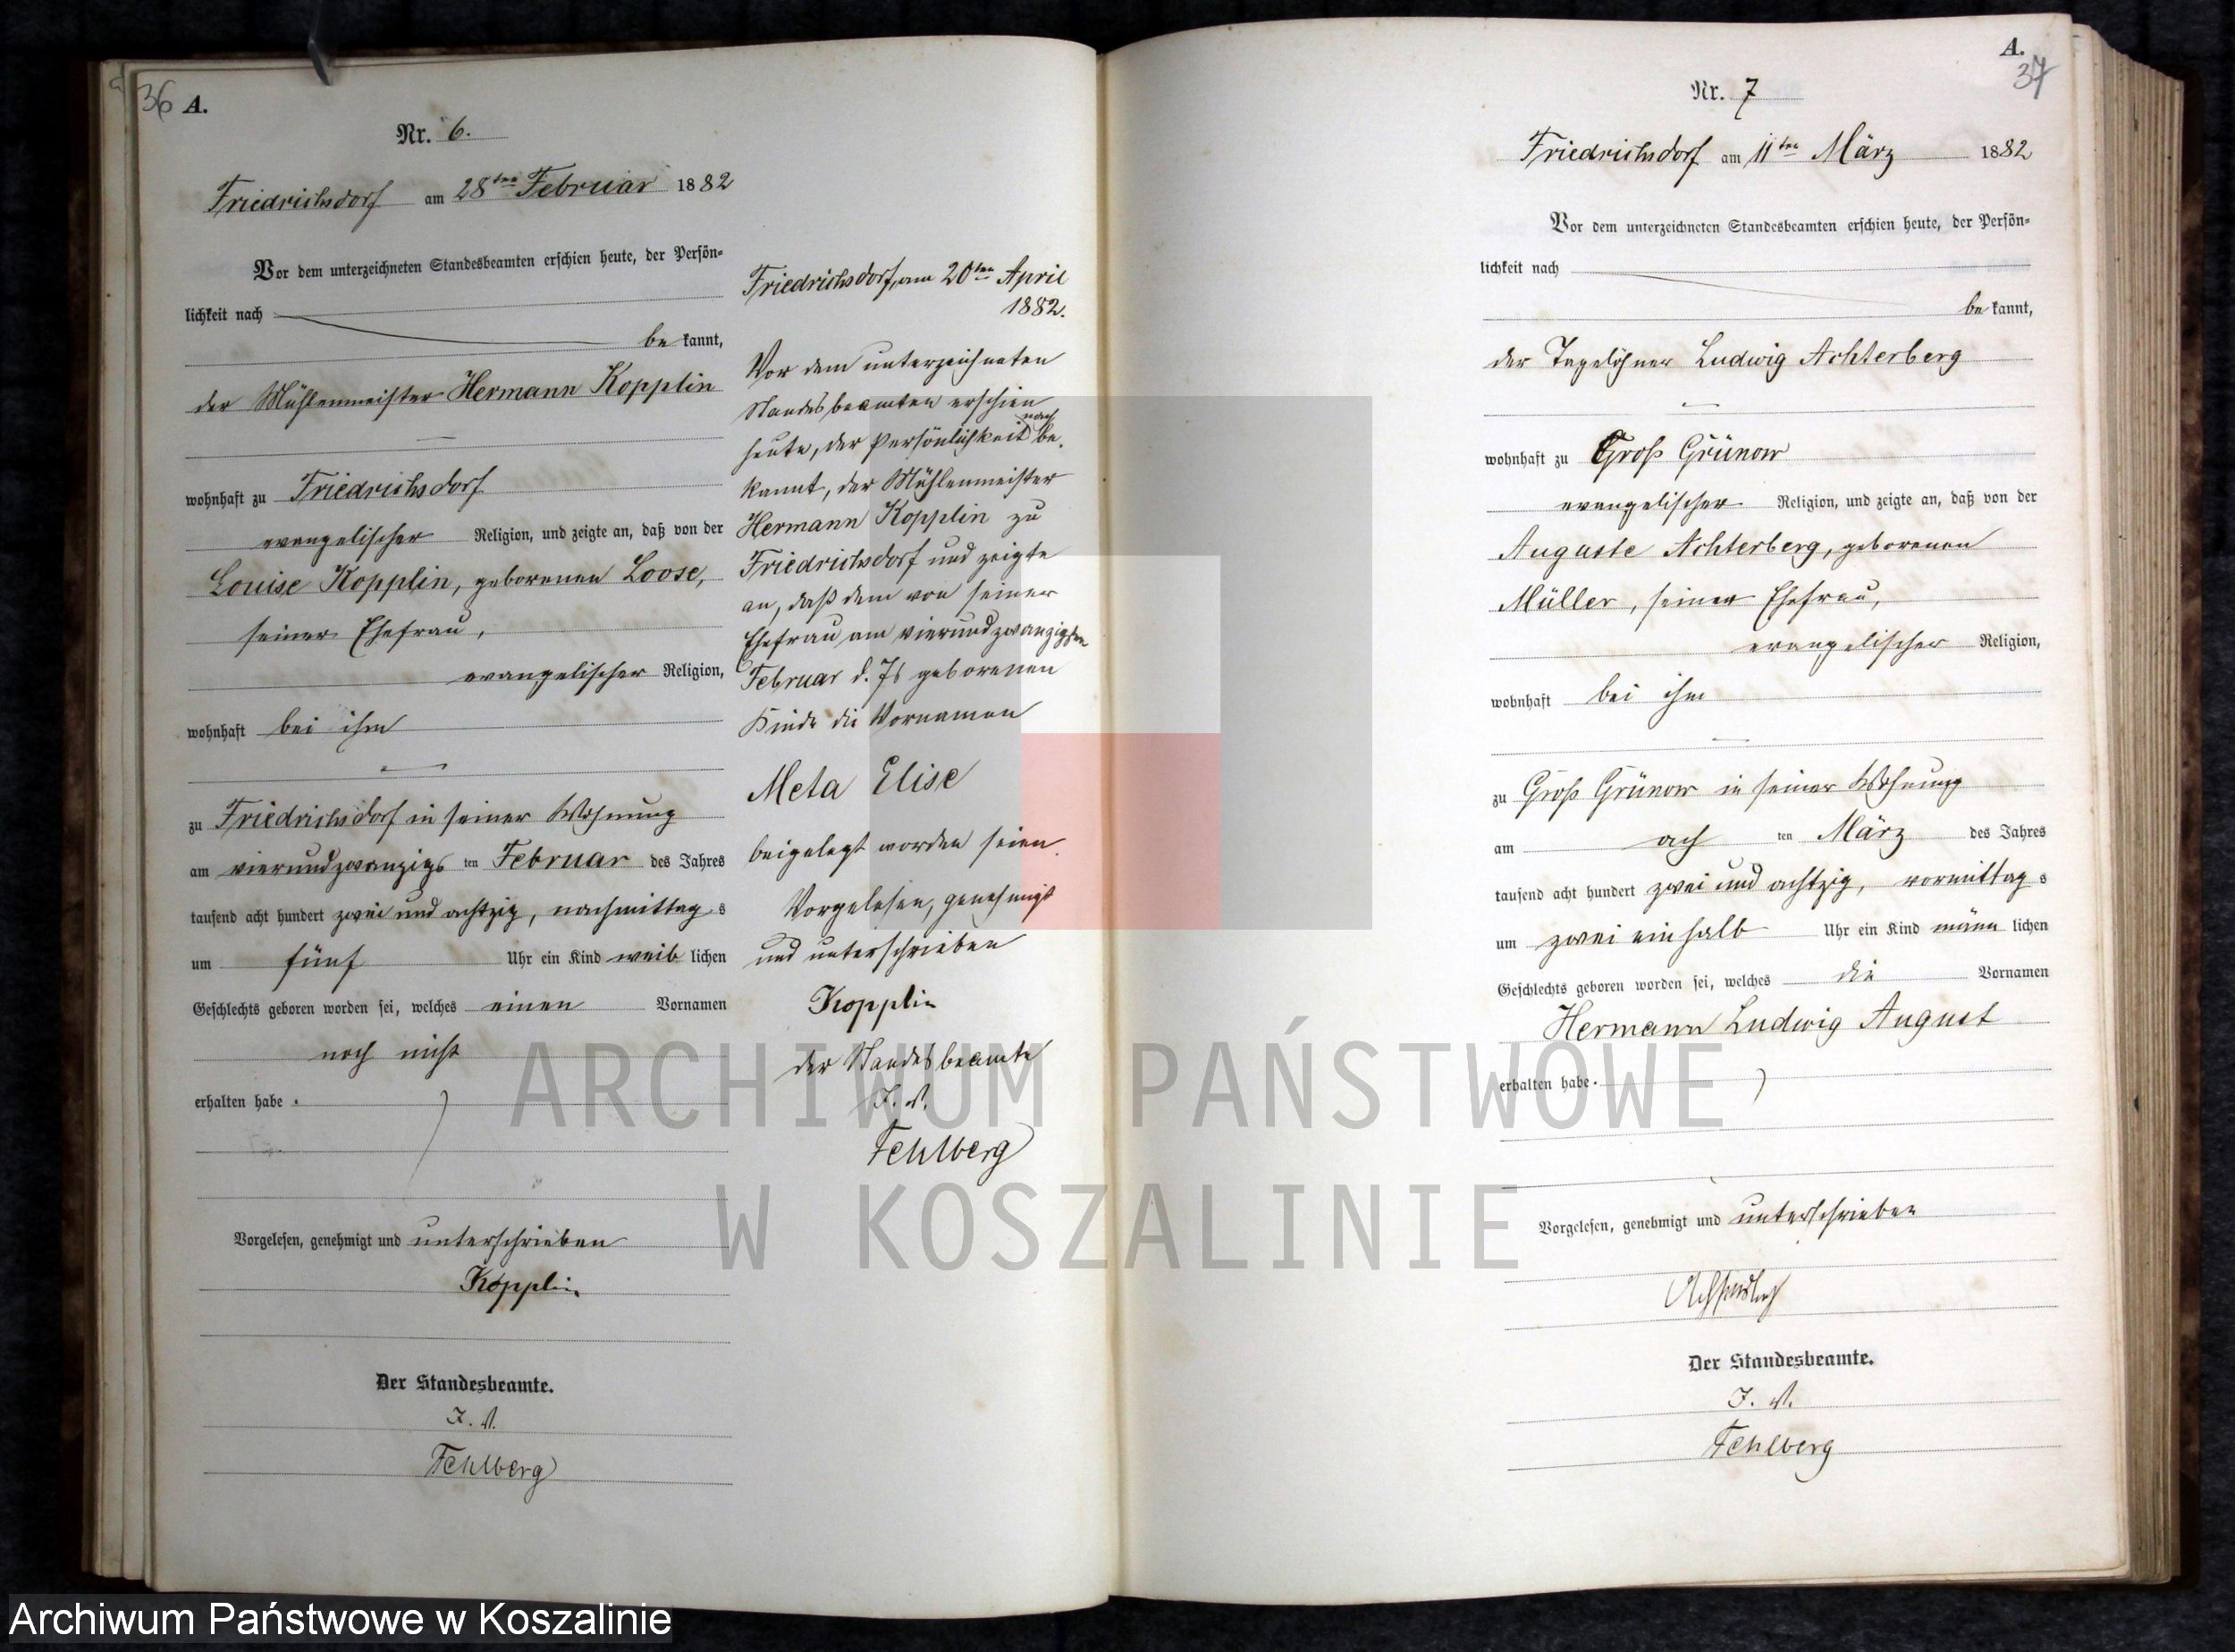 36 A.
Nr. 6.
Friedrichsdorf am 28ten Februar 1882
Vor dem unterzeichneten Standesbeamten erschien heute, der Persön-
lichkeit nach
be kannt,
der Mühlenmeister Hermann Kopplin
wohnhaft zu Friedrichsdorf
evangelischer Religion, und zeigte an, daß von der
Louise Kopplin, geborenen Loose,
seiner Ehefrau,
evangelischer Religion,
wohnhaft bei ihm
zu Friedrichsdorf in seiner Wohnung
am vierundzwanzigs ten Februar des Jahres
tausend acht hundert zwei und achtzig, nachmittag s
um fünf Uhr ein Kind weib lichen
Geschlechts geboren worden sei, welches einen Vornamen
noch nicht
erhalten habe .
Vorgelesen, genehmigt und unterschrieben
Kopplin
Der Standesbeamte.
I. V.
Fehlberg
Friedrichsdorf, am 20ten April
1882.
Vor dem unterzeichneten
Standesbeamten erschien
heute, der Persönlichkeit nach be-
kannt, der Mühlenmeister
Hermann Kopplin zu
Friedrichsdorf und zeigte
an, daß dem von seiner
Ehefrau am vierundzwanzigsten
Februar d. Js geborenen
Kinde die Vornamen
Meta Elise
beigelegt worden seien.
Vorgelesen, genehmigt
und unterschrieben
Kopplin
der Standesbeamte
I. V.
Fehlberg
A.
37
Nr. 7
Friedrichsdorf am 11ten März 1882
Vor dem unterzeichneten Standesbeamten erschien heute, der Persön-
lichkeit nach
be kannt,
der Tagelöhner Ludwig Achterberg
wohnhaft zu Groß Grünow
evangelischer Religion, und zeigte an, daß von der
Auguste Achterberg, geborenen
Müller, seiner Ehefrau,
evangelischer Religion,
wohnhaft bei ihm
zu Groß Grünow in seiner Wohnung
am ach ten März des Jahres
tausend acht hundert zwei und achtzig, vormittag s
um zwei einhalb Uhr ein Kind männ lichen
Geschlechts geboren worden sei, welches die Vornamen
Hermann Ludwig August
erhalten habe.
Vorgelesen, genehmigt und unterschrieben
Achterberg
Der Standesbeamte.
I. V.
Fehlberg
ARCHIWUM PAŃSTWOWE
W KOSZALINIE
Archiwum Państwowe w Koszalinie